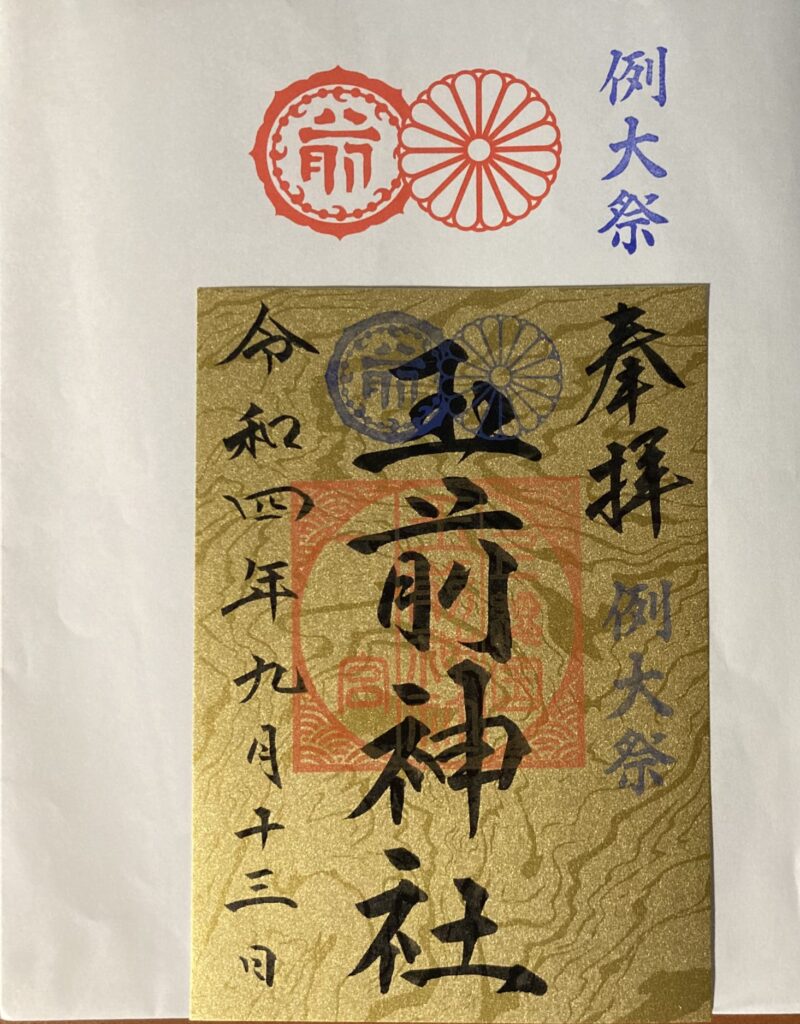 例大祭
前
奉拝
例大祭
玉前神社
前
令和四年九月十三日